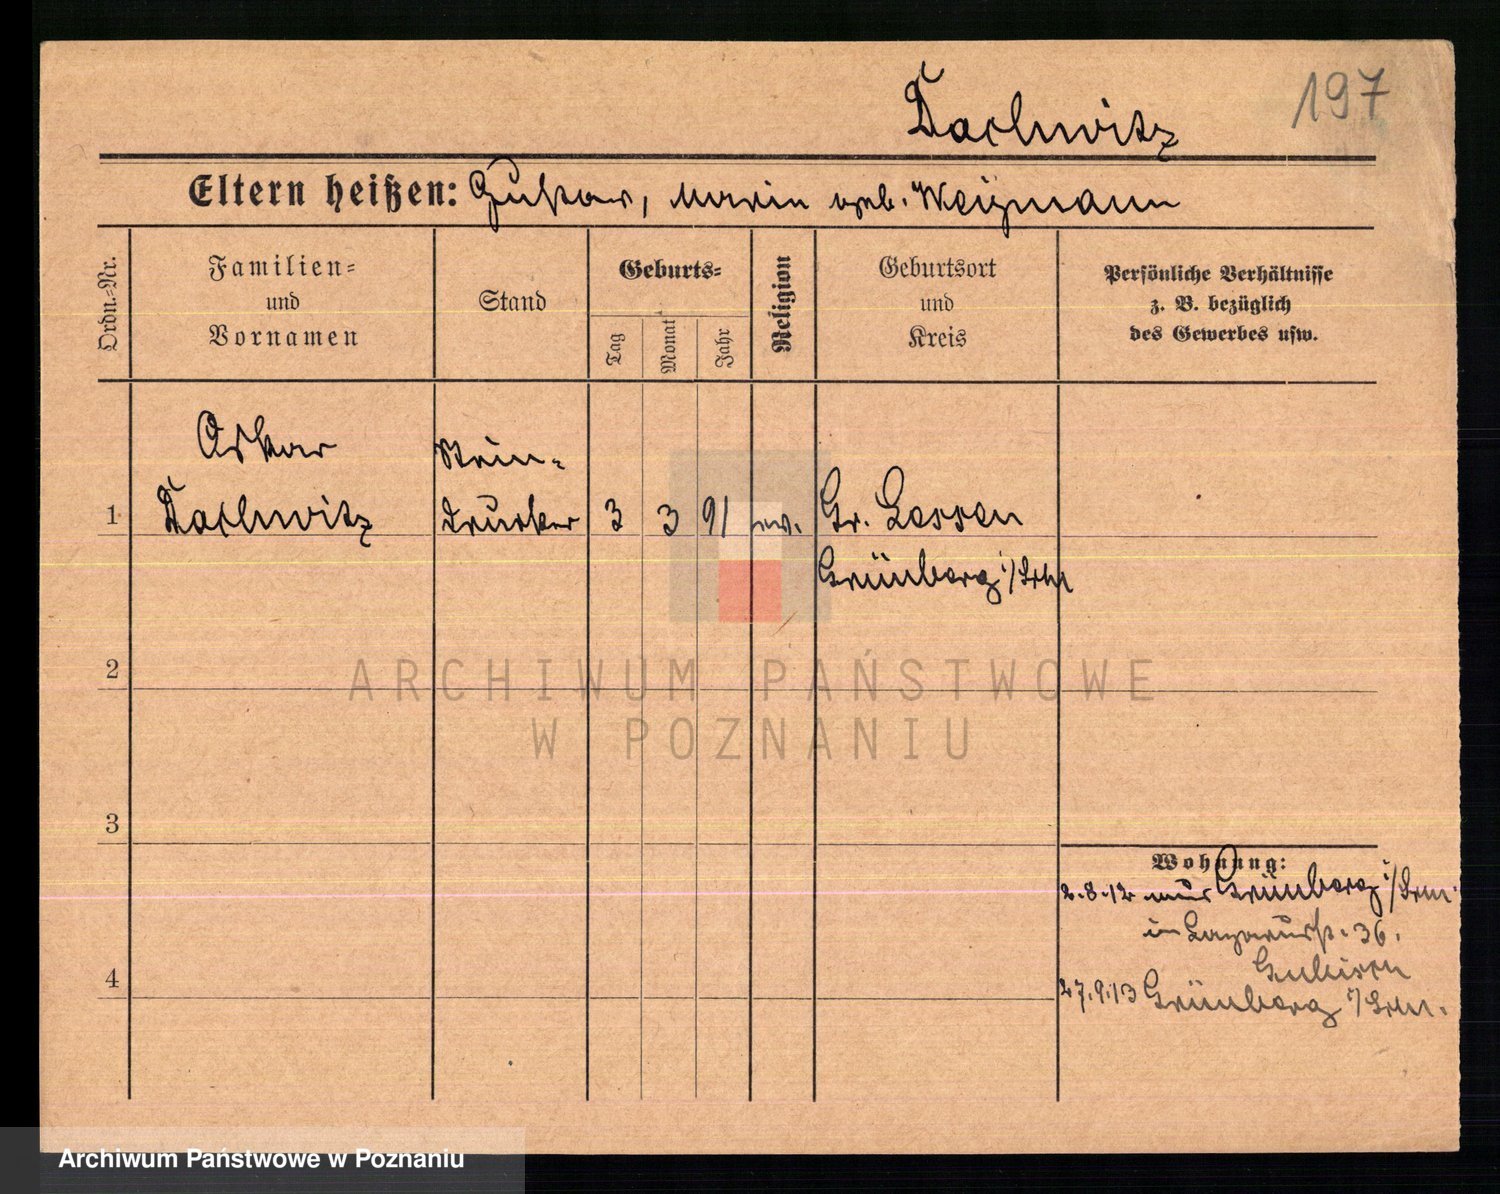 197
Tachwitz
Eltern heißen: Gustav, Marie geb. Weizmann
Ordn.-Nr.
Familien-
und
Vornamen
Stand
Geburts-
Tag
Monat
Jahr
Religion
Geburtsort
und
Kreis
Persönliche Verhältnisse
z. B. bezüglich
des Gewerbes usw.
Oskar
Tachwitz
Stein-
drucker
1
3
3
91
ev.
Gr. Lessen
Grünberg i/Schl
2
3
4
Wohnung:
2.8.12 aus Grünberg i/Schl.
in Lazarusstr. 36.
27.9.13 Grünberg i/Schl.
ARCHIWUM PAŃSTWOWE
W POZNANIU
Archiwum Państwowe w Poznaniu